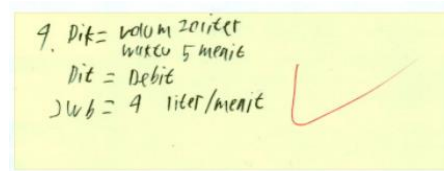 4. Dik = volum 20 liter
waktu 5 menit
Dit = Debit
Jwb = 4 liter/menit